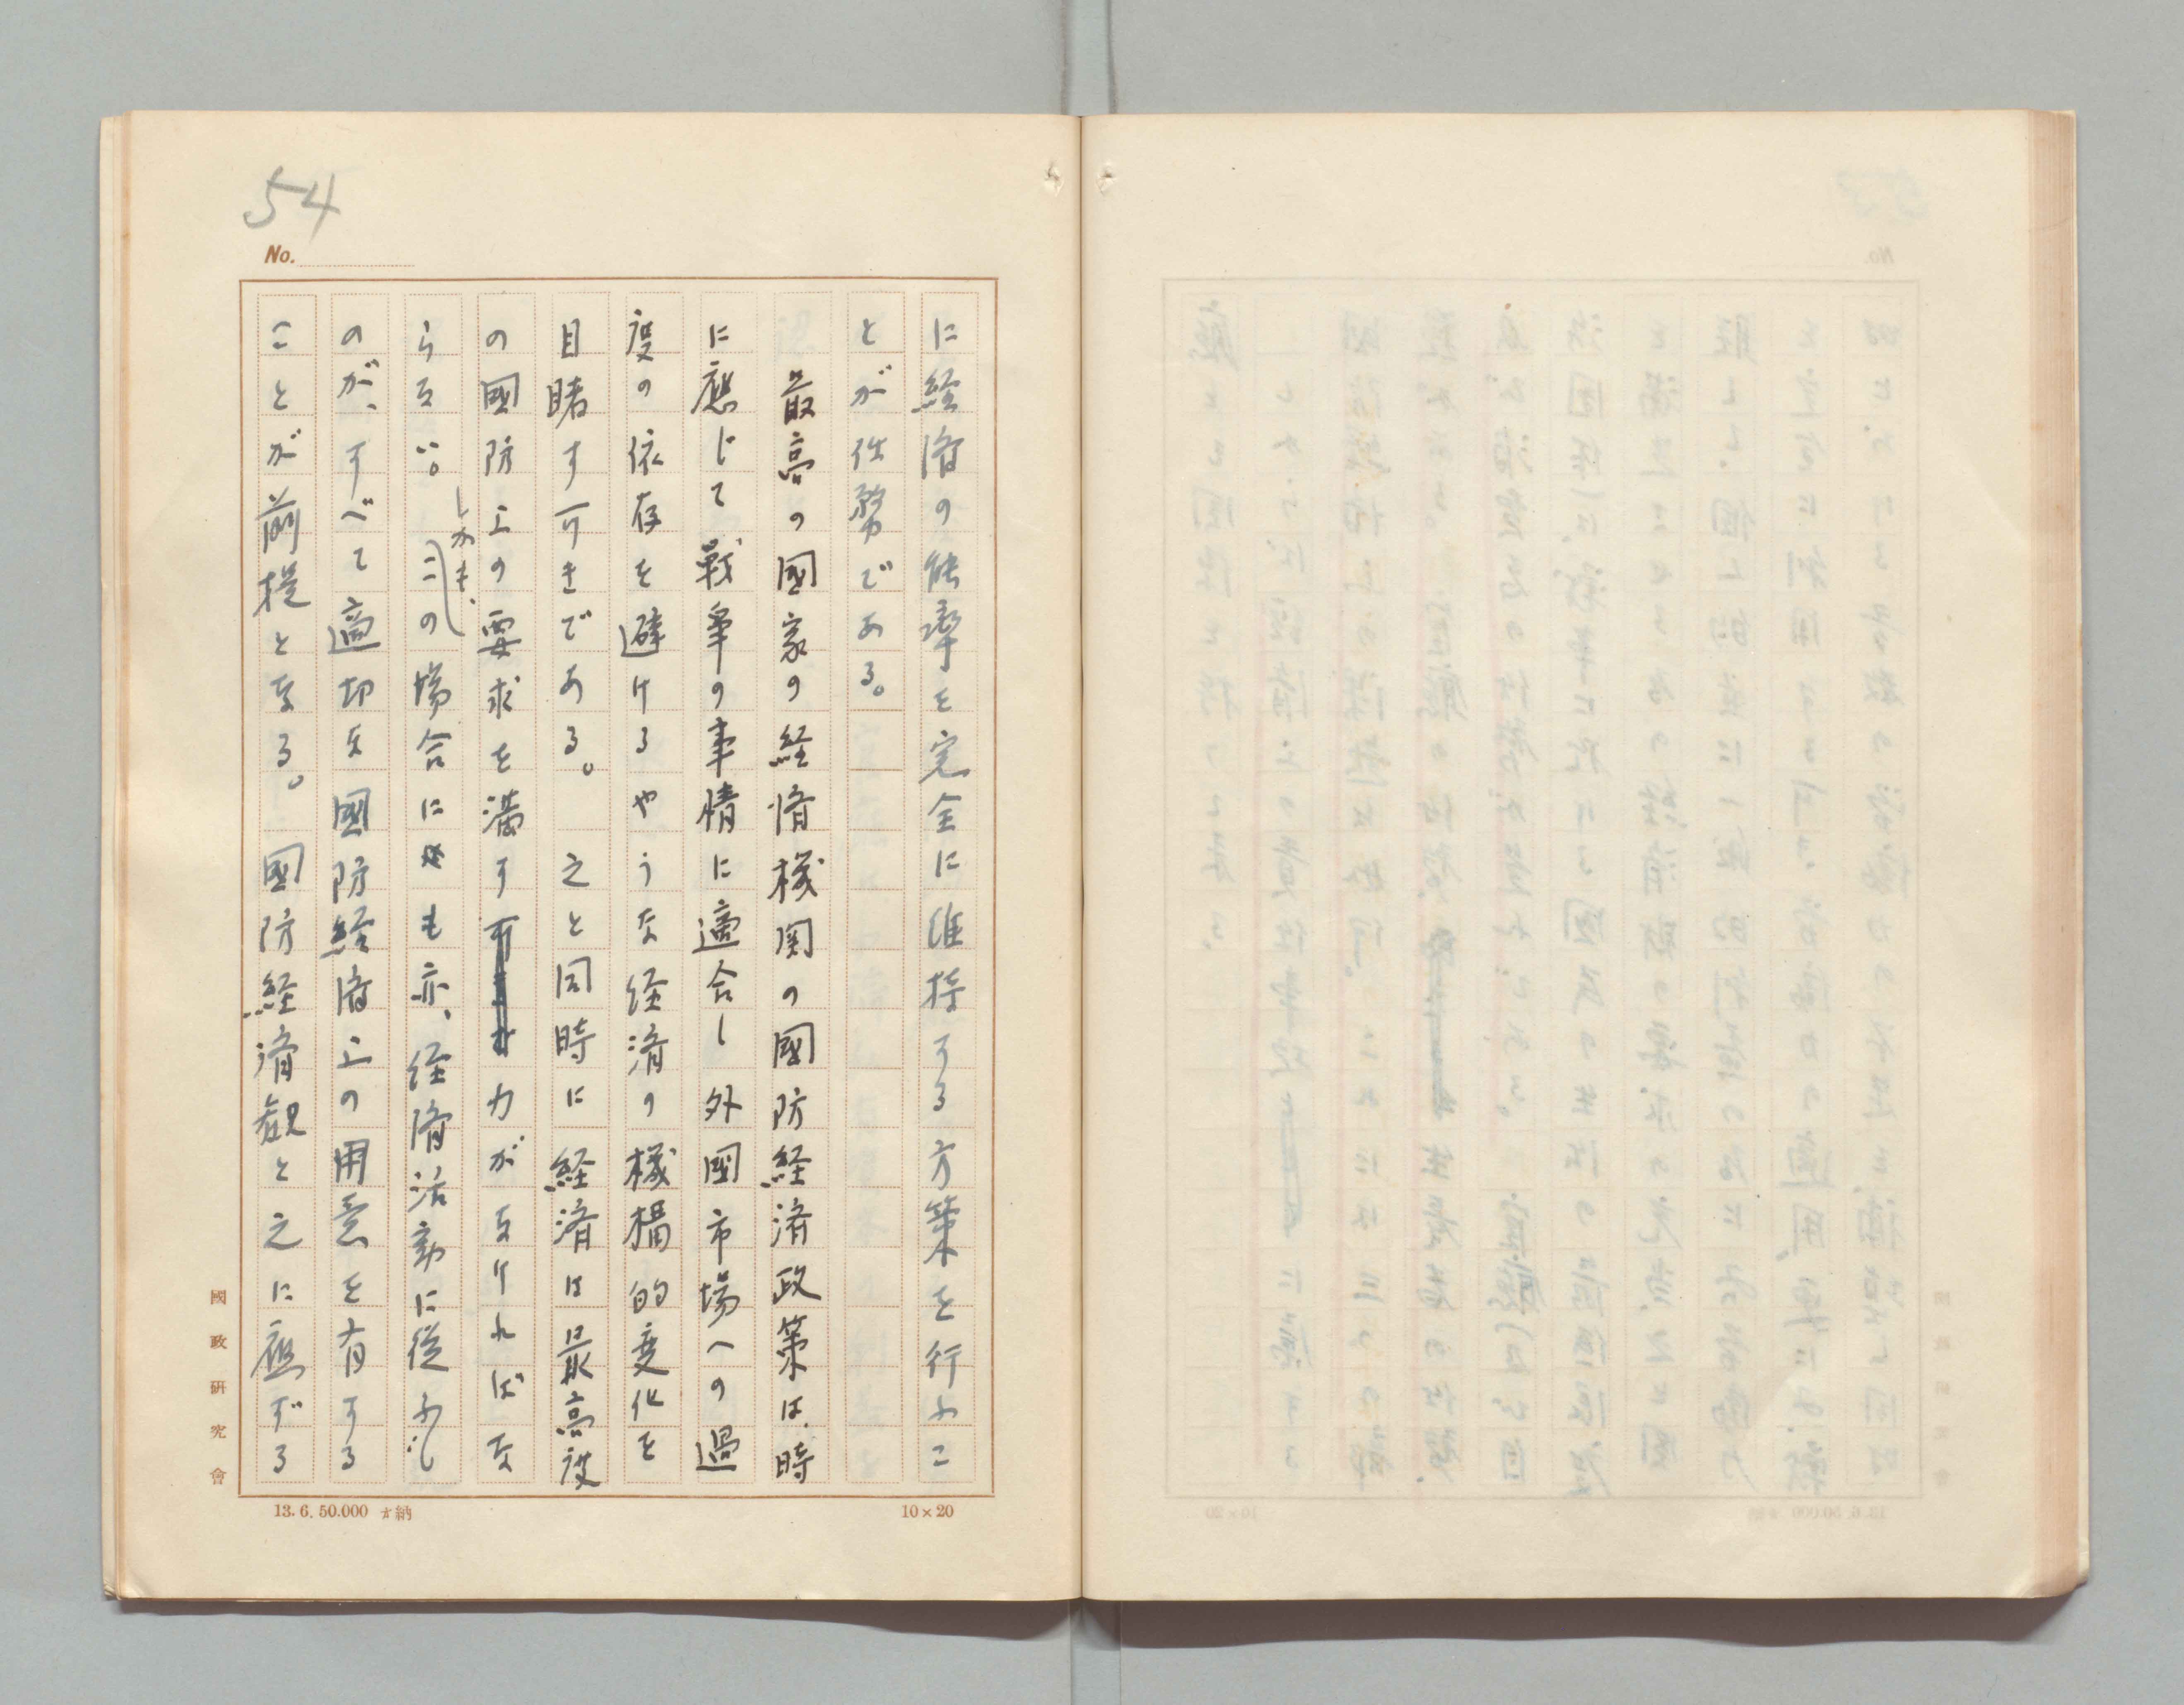 54
No.
に経済の能率を完全に維持する方策を行ふこ
とが任務である。
最高の國家の経済機関の國防経済政策は、時
に應じて戦争の事情に適合し外國市場への過
度の依存を避けるやうな経済の機構的変化を
目睹す可きである。之と同時に経済は最高度
の國防上の要求を満す力がなければな
らない。しかも、この場合にも亦、経済活動に従ふ
のが、すべて適切な國防経済上の用意を有する
ことが前提となる。國防経済観と之に應ずる
國政研究會
13.6.50.000 オ納
10×20